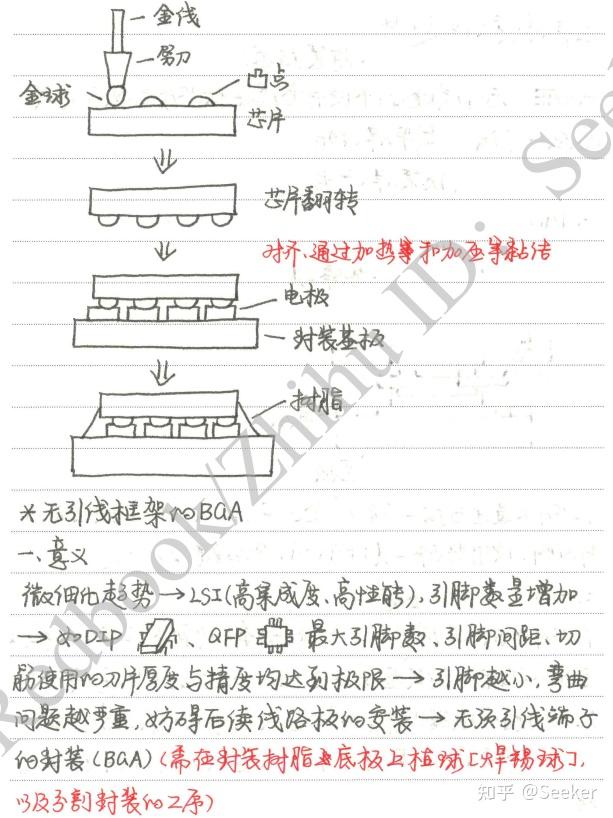 金线
劈刀
金球
凸点
芯片
芯片翻转
对齐、通过加热等和加压等粘结
电极
封装基板
树脂
*无引线框架的BGA
一、意义
微细化趋势→LSI(高集成度、高性能),引脚数量增加
→如DIP、QFP最大引脚数、引脚间距、切
筋使用的刀片厚度与精度均达到极限→引脚越小,弯曲
问题越严重,妨碍后续线路板的安装→无须引线端子
的封装(BGA)(需在封装树脂底板上植球[焊锡球],
以及分割封装的工序)
Redbook/Zhihu ID: See
知乎 @Seeker